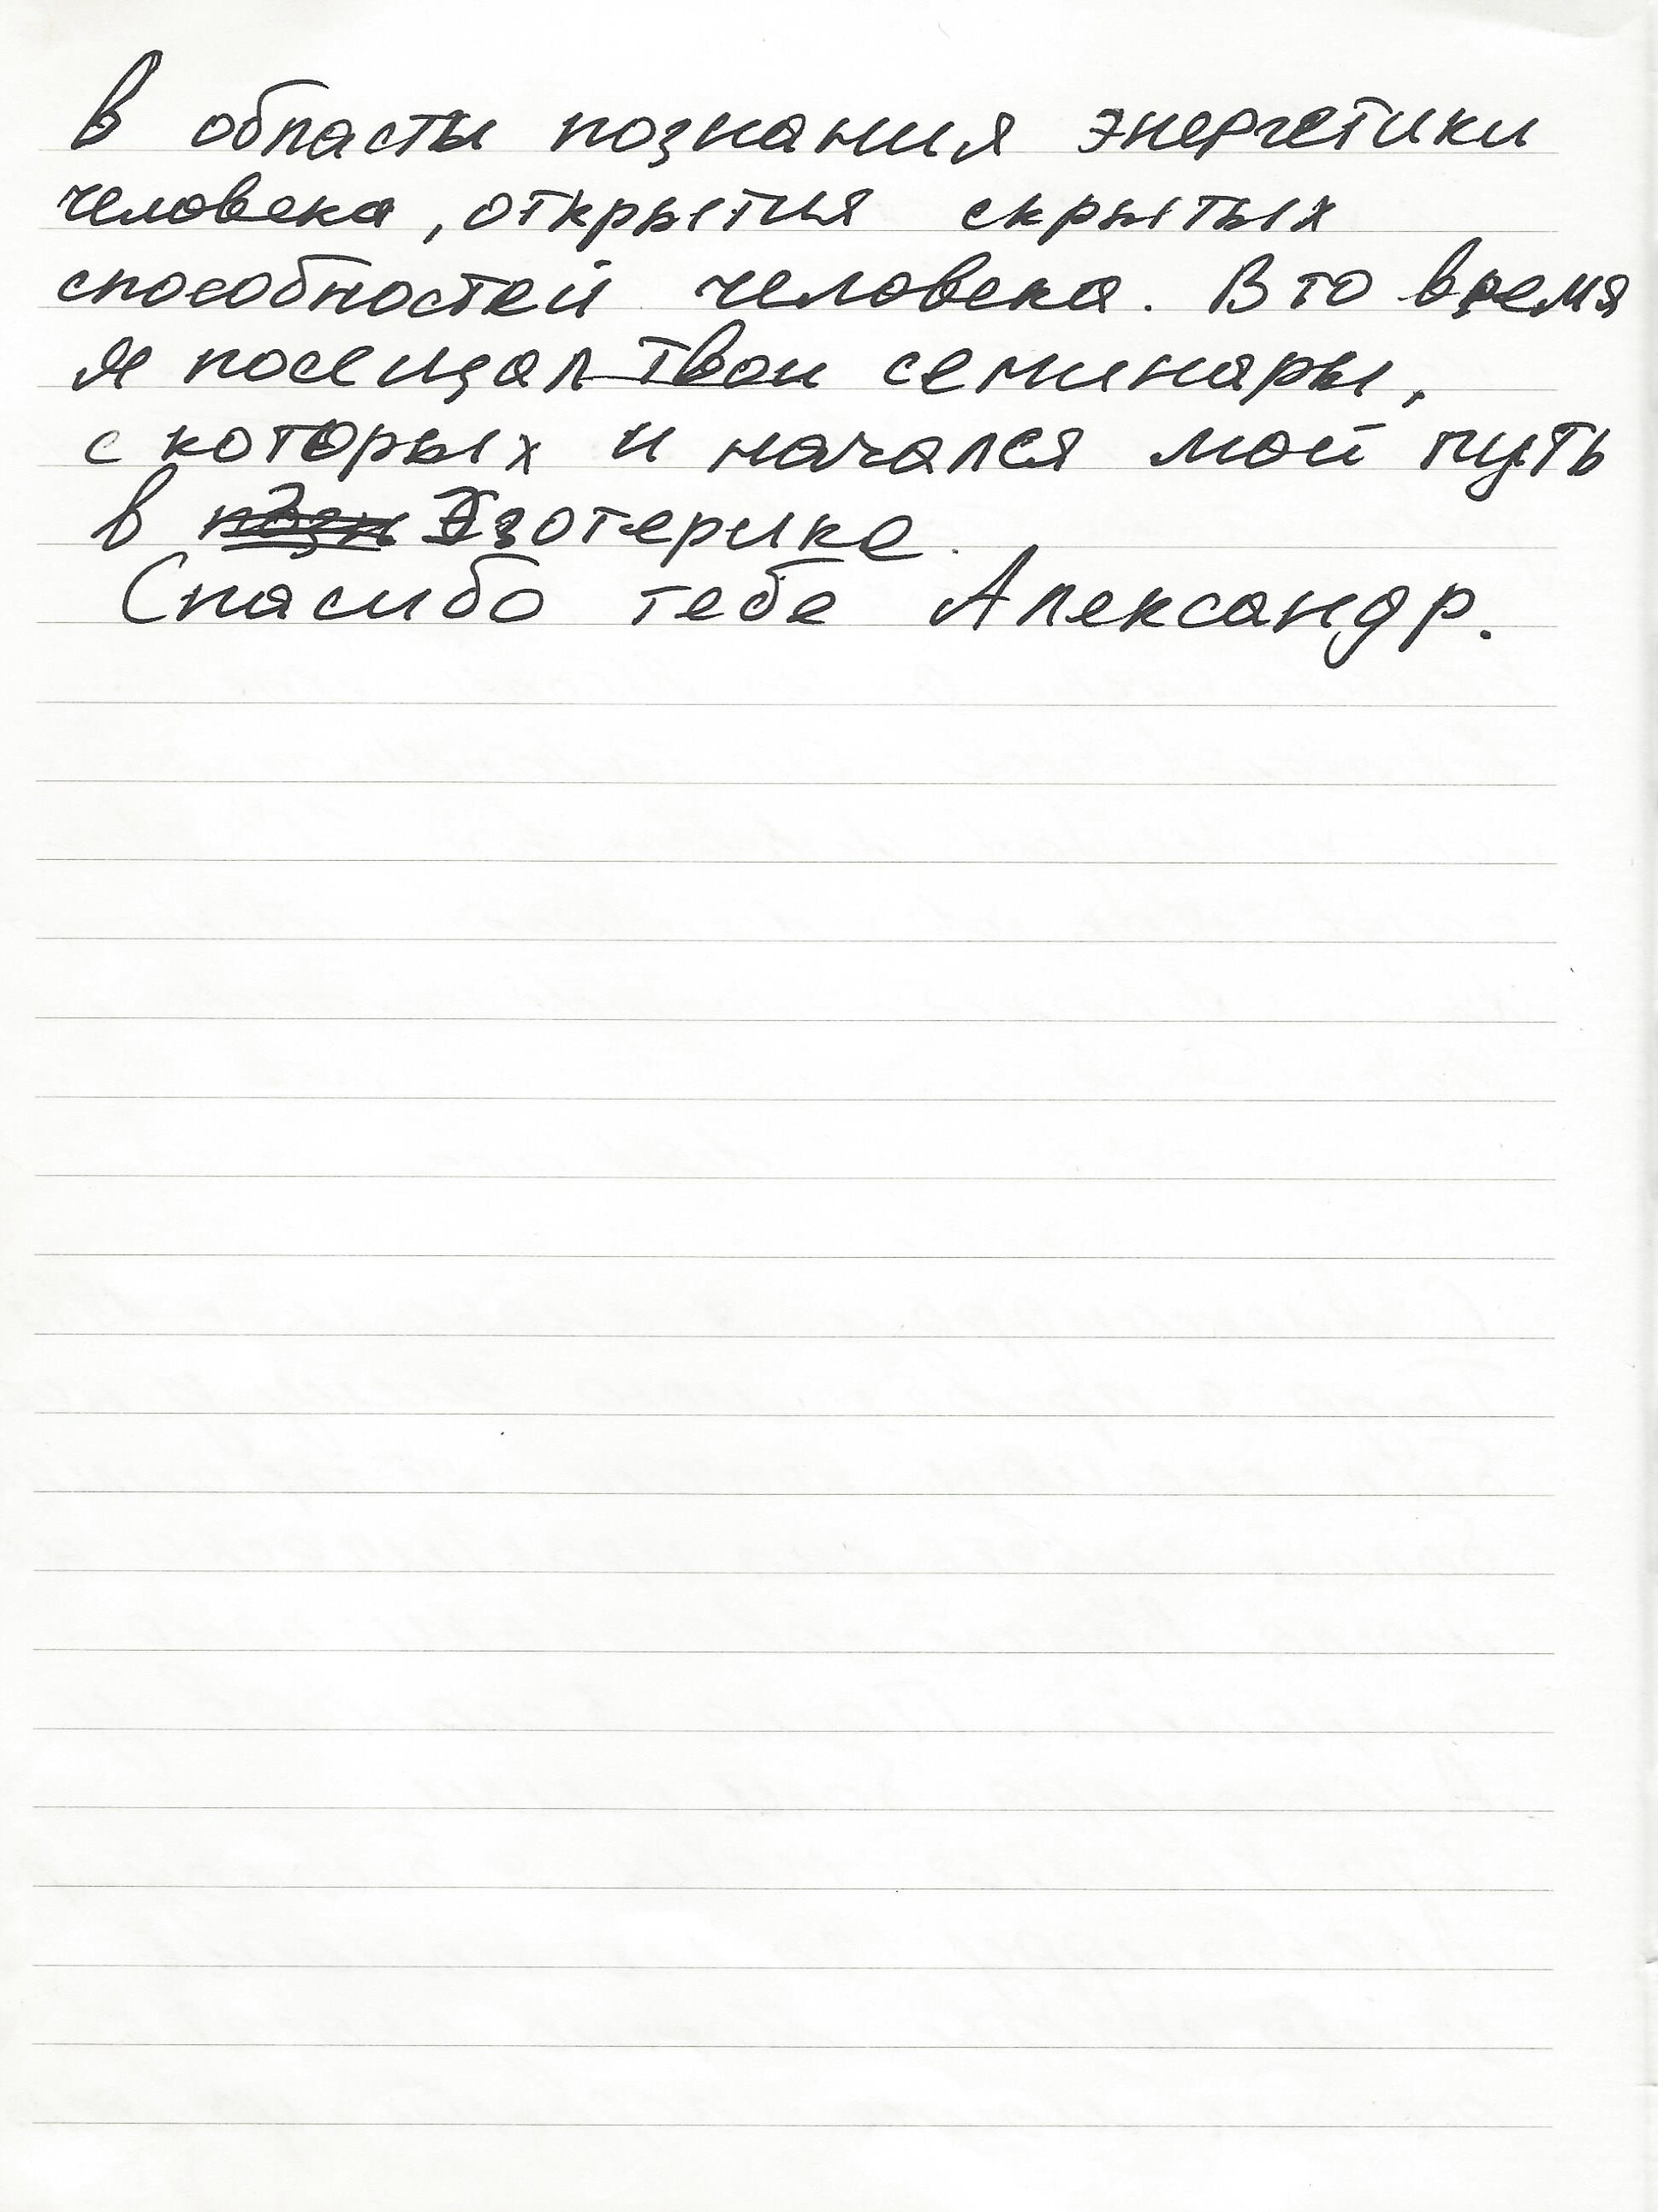 в области познания энергетики
человека, открытия скрытых
способностей человека. В то время
я посещал твои семинары,
с которых и начался мой путь
в позн Эзотерике.
Спасибо тебе Александр.